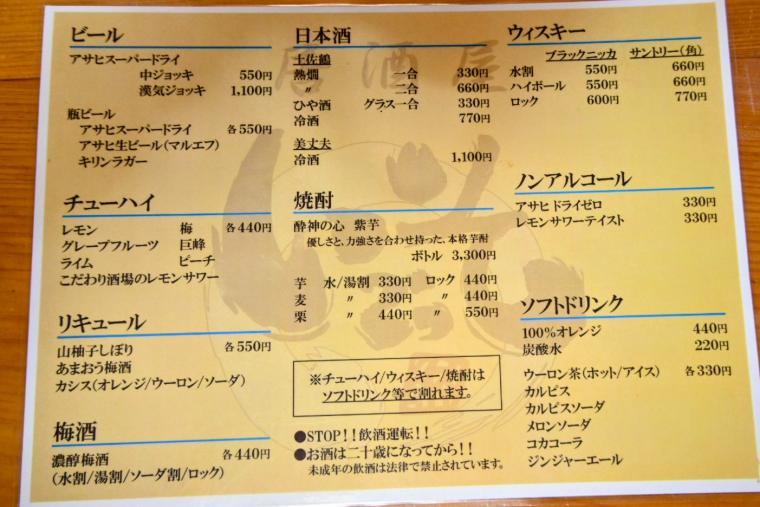 ビール
アサヒスーパードライ
中ジョッキ 550円
漢気ジョッキ 1,100円
瓶ビール
アサヒスーパードライ 各550円
アサヒ生ビール(マルエフ)
キリンラガー
チューハイ
レモン 梅 各440円
グレープフルーツ 巨峰
ライム ピーチ
こだわり酒場のレモンサワー
リキュール
山柚子しぼり 各550円
あまおう梅酒
カシス(オレンジ/ウーロン/ソーダ)
梅酒
濃醇梅酒 各440円
(水割/湯割/ソーダ割/ロック)
日本酒
土佐鶴
熱燗 一合 330円
〃 二合 660円
ひや酒 グラス一合 330円
冷酒 770円
美丈夫
冷酒 1,100円
焼酎
酔神の心 紫芋
優しさと、力強さを合わせ持った、本格芋酎
ボトル 3,300円
芋 水/湯割 330円 ロック 440円
麦 〃 330円 〃 440円
栗 〃 440円 〃 550円
※チューハイ/ウィスキー/焼酎は
ソフトドリンク等で割れます。
●STOP!!飲酒運転!!
●お酒は二十歳になってから!!
未成年の飲酒は法律で禁止されています。
ウィスキー
ブラックニッカ サントリー(角)
水割 550円 660円
ハイボール 550円 660円
ロック 600円 770円
ノンアルコール
アサヒ ドライゼロ 330円
レモンサワーテイスト 330円
ソフトドリンク
100%オレンジ 440円
炭酸水 220円
ウーロン茶(ホット/アイス) 各330円
カルピス
カルピスソーダ
メロンソーダ
コカコーラ
ジンジャーエール
居酒屋